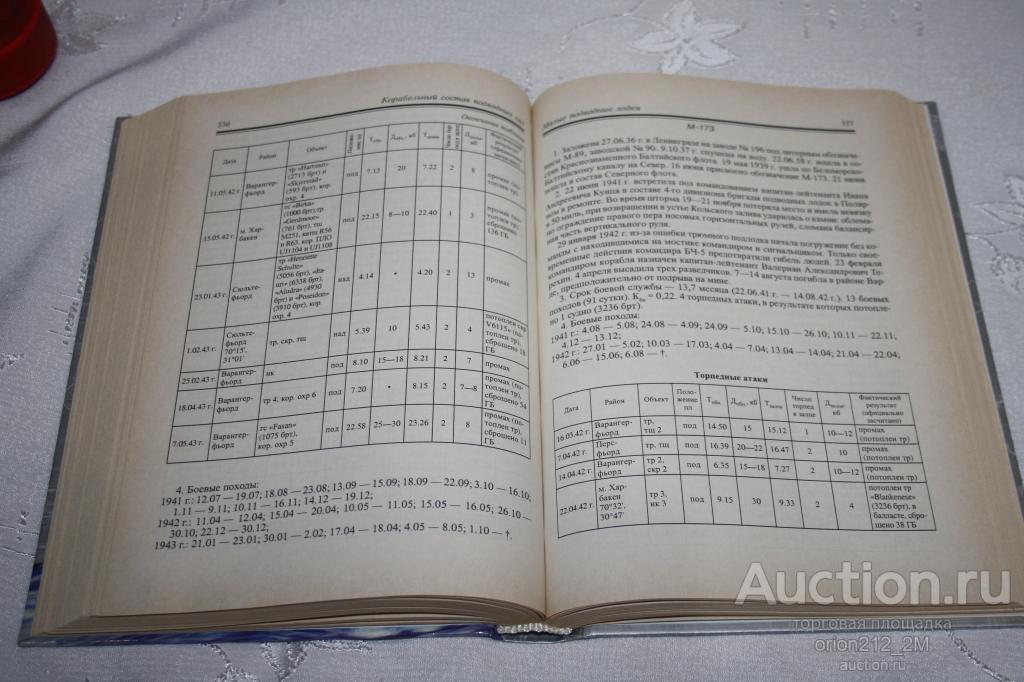 336
Корабельный состав подводных
Окончание
Дата Район Объект Тобн. Добн., кб Тзалп. Дзалп. кб
11.05.42 г. Варангер-фьорд тр «Hartmut» (2713 брт) и «Skyrmud» (593 брт), кор. охр. 4 под 7.13 20 7.22 2 8 промах (потоплен тр)
15.05.42 г. м. Харбакен гс «Birka» (1000 брт), тр «Gerdmoor» (761 брт), тщ M251, катщ R56 и R63, кор. ПЛО UJ1104 и UJ1108 под 22.15 8—10 22.40 1 3 промах (потоплен тр), сброшено 136 ГБ
23.01.43 г. Сюльте-фьорд тр «Henriette Schulte» (5056 брт), «Ituri» (6338 брт), «Aludra» (4930 брт) и «Poseidon» (3910 брт), кор. охр. 4 над 4.14 • 4.20 2 13 промах
1.02.43 г. Сюльте-фьорд 70°15', 31°01' тр, скр, тщ над 5.39 10 5.43 2 4 потоплен скр V6115» (потоплен тр), сброшено 18 ГБ
25.02.43 г. Варангер-фьорд нк под 8.10 15—18 8.21 2 7 промах
18.04.43 г. Варангер-фьорд тр 4, кор. охр 6 под 7.20 • 8.15 2 7—8 промах (потоплен тр), сброшено 54 ГБ
7.05.43 г. Варангер-фьорд гс «Fasan» (1075 брт), кор. охр 5 под 22.58 25—30 23.26 2 8 промах (потоплен тр), сброшено 11 ГБ
4. Боевые походы:
1941 г.: 12.07 — 19.07; 18.08 — 23.08; 13.09 — 15.09; 18.09 — 22.09; 3.10 — 16.10;
1.11 — 9.11; 10.11 — 16.11; 14.12 — 19.12;
1942 г.: 11.04 — 12.04; 15.04 — 20.04; 10.05 — 11.05; 15.05 — 16.05; 26.10 —
30.10; 22.12 — 30.12;
1943 г.: 21.01 — 23.01; 30.01 — 2.02; 17.04 — 18.04; 4.05 — 8.05; 1.10 — †.
Малые подводные лодки
337
М-173
1. Заложена 27.06.36 г. в Ленинграде на заводе № 196 под литерным обозначе-
нием М-89, заводской № 90. 9.10.37 г. спущена на воду. 22.06.38 г. вошла в со-
став Краснознаменного Балтийского флота. 19 мая 1939 г. ушла по Беломорско-
Балтийскому каналу на Север. 16 июня присвоено обозначение М-173. 21 июня
вошла в состав Северного флота.
2. 22 июня 1941 г. встретила под командованием капитан-лейтенанта Ивана
Андреевича Кунца в составе 4-го дивизиона бригады подводных лодок в Поляр-
ном в ремонте. Во время шторма 19—21 ноября потеряла место и имела невязку
50 миль, при возвращении в устье Кольского залива ударилась о камни: облома-
но ограждение правого пера носовых горизонтальных рулей, сломана балансир-
ная часть вертикального руля.
29 января 1942 г. из-за ошибки трюмного подлодка начала погружение без ко-
манды с находившимися на мостике командиром и сигнальщиком. Только свое-
временные действия командира БЧ-5 предотвратили гибель людей. 23 февраля
командиром корабля назначен капитан-лейтенант Валериан Александрович Те-
рехин. 4 апреля высадила трех разведчиков. 7—14 августа погибла в районе Вар-
де, предположительно от подрыва на мине.
3. Срок боевой службы — 13,7 месяца (22.06.41 г. — 14.08.42 г.). 13 боевых
походов (91 сутки). = 0,22. 4 торпедных атаки, в результате которых потопле-
но 1 судно (3236 брт).
4. Боевые походы:
1941 г.: 4.08 — 5.08; 24.08 — 4.09; 24.09 — 5.10; 15.10 — 26.10; 10.11 — 22.11;
4.12 — 13.12;
1942 г.: 27.01 — 5.02; 10.03 — 17.03; 4.04 — 7.04; 13.04 — 14.04; 21.04 — 22.04;
6.06 — 15.06; 6.08 — †.
Торпедные атаки
Дата Район Объект Положение пл Тобн. Добн., кб Тзалп. Число торпед в залпе Дзалп. кб Фактический результат (официально засчитано)
16.03.42 г. Варангер-фьорд тр, тщ 2 под 14.50 15 15.12 1 10—12 промах (потоплен тр)
7.04.42 г. Перс-фьорд тр, тщ под 16.39 20—22 16.47 2 10 промах (потоплен тр)
14.04.42 г. Варангер-фьорд тр 2, скр 2 под 6.35 15—18 7.27 2 10—12 промах (потоплен тр)
22.04.42 г. м. Харбакен 70°32', 30°47' тр 3, нк 3 под 9.15 30 9.33 2 4 потоплен тр «Blankenese» (3236 брт), в балласте, сброшено 38 ГБ
Auction.ru
торговая площадка
orion212_2M
auction.ru